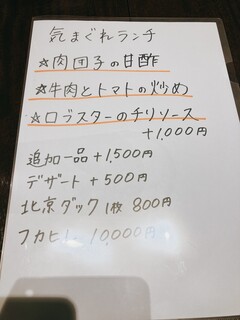 気まぐれランチ
☆肉団子の甘酢
☆牛肉とトマトの炒め
☆ロブスターのチリソース
+1,000円
追加一品+1,500円
デザート+500円
北京ダック1枚 800円
フカヒレ 10,000円